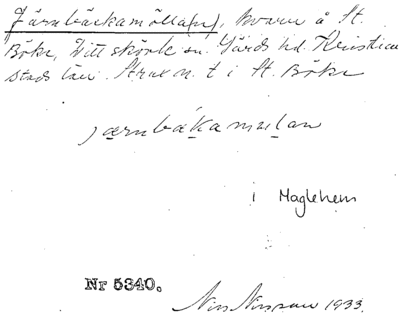 Järnbäckamölla(n), kvarn å St.
Böke, Vittskövle sn. Gärds hd. Kristian
stads län. Strax n. t i St. Böke
jærnbækamulan
i Maglehem
Nr 5340.
Nils Nilsson 1933.